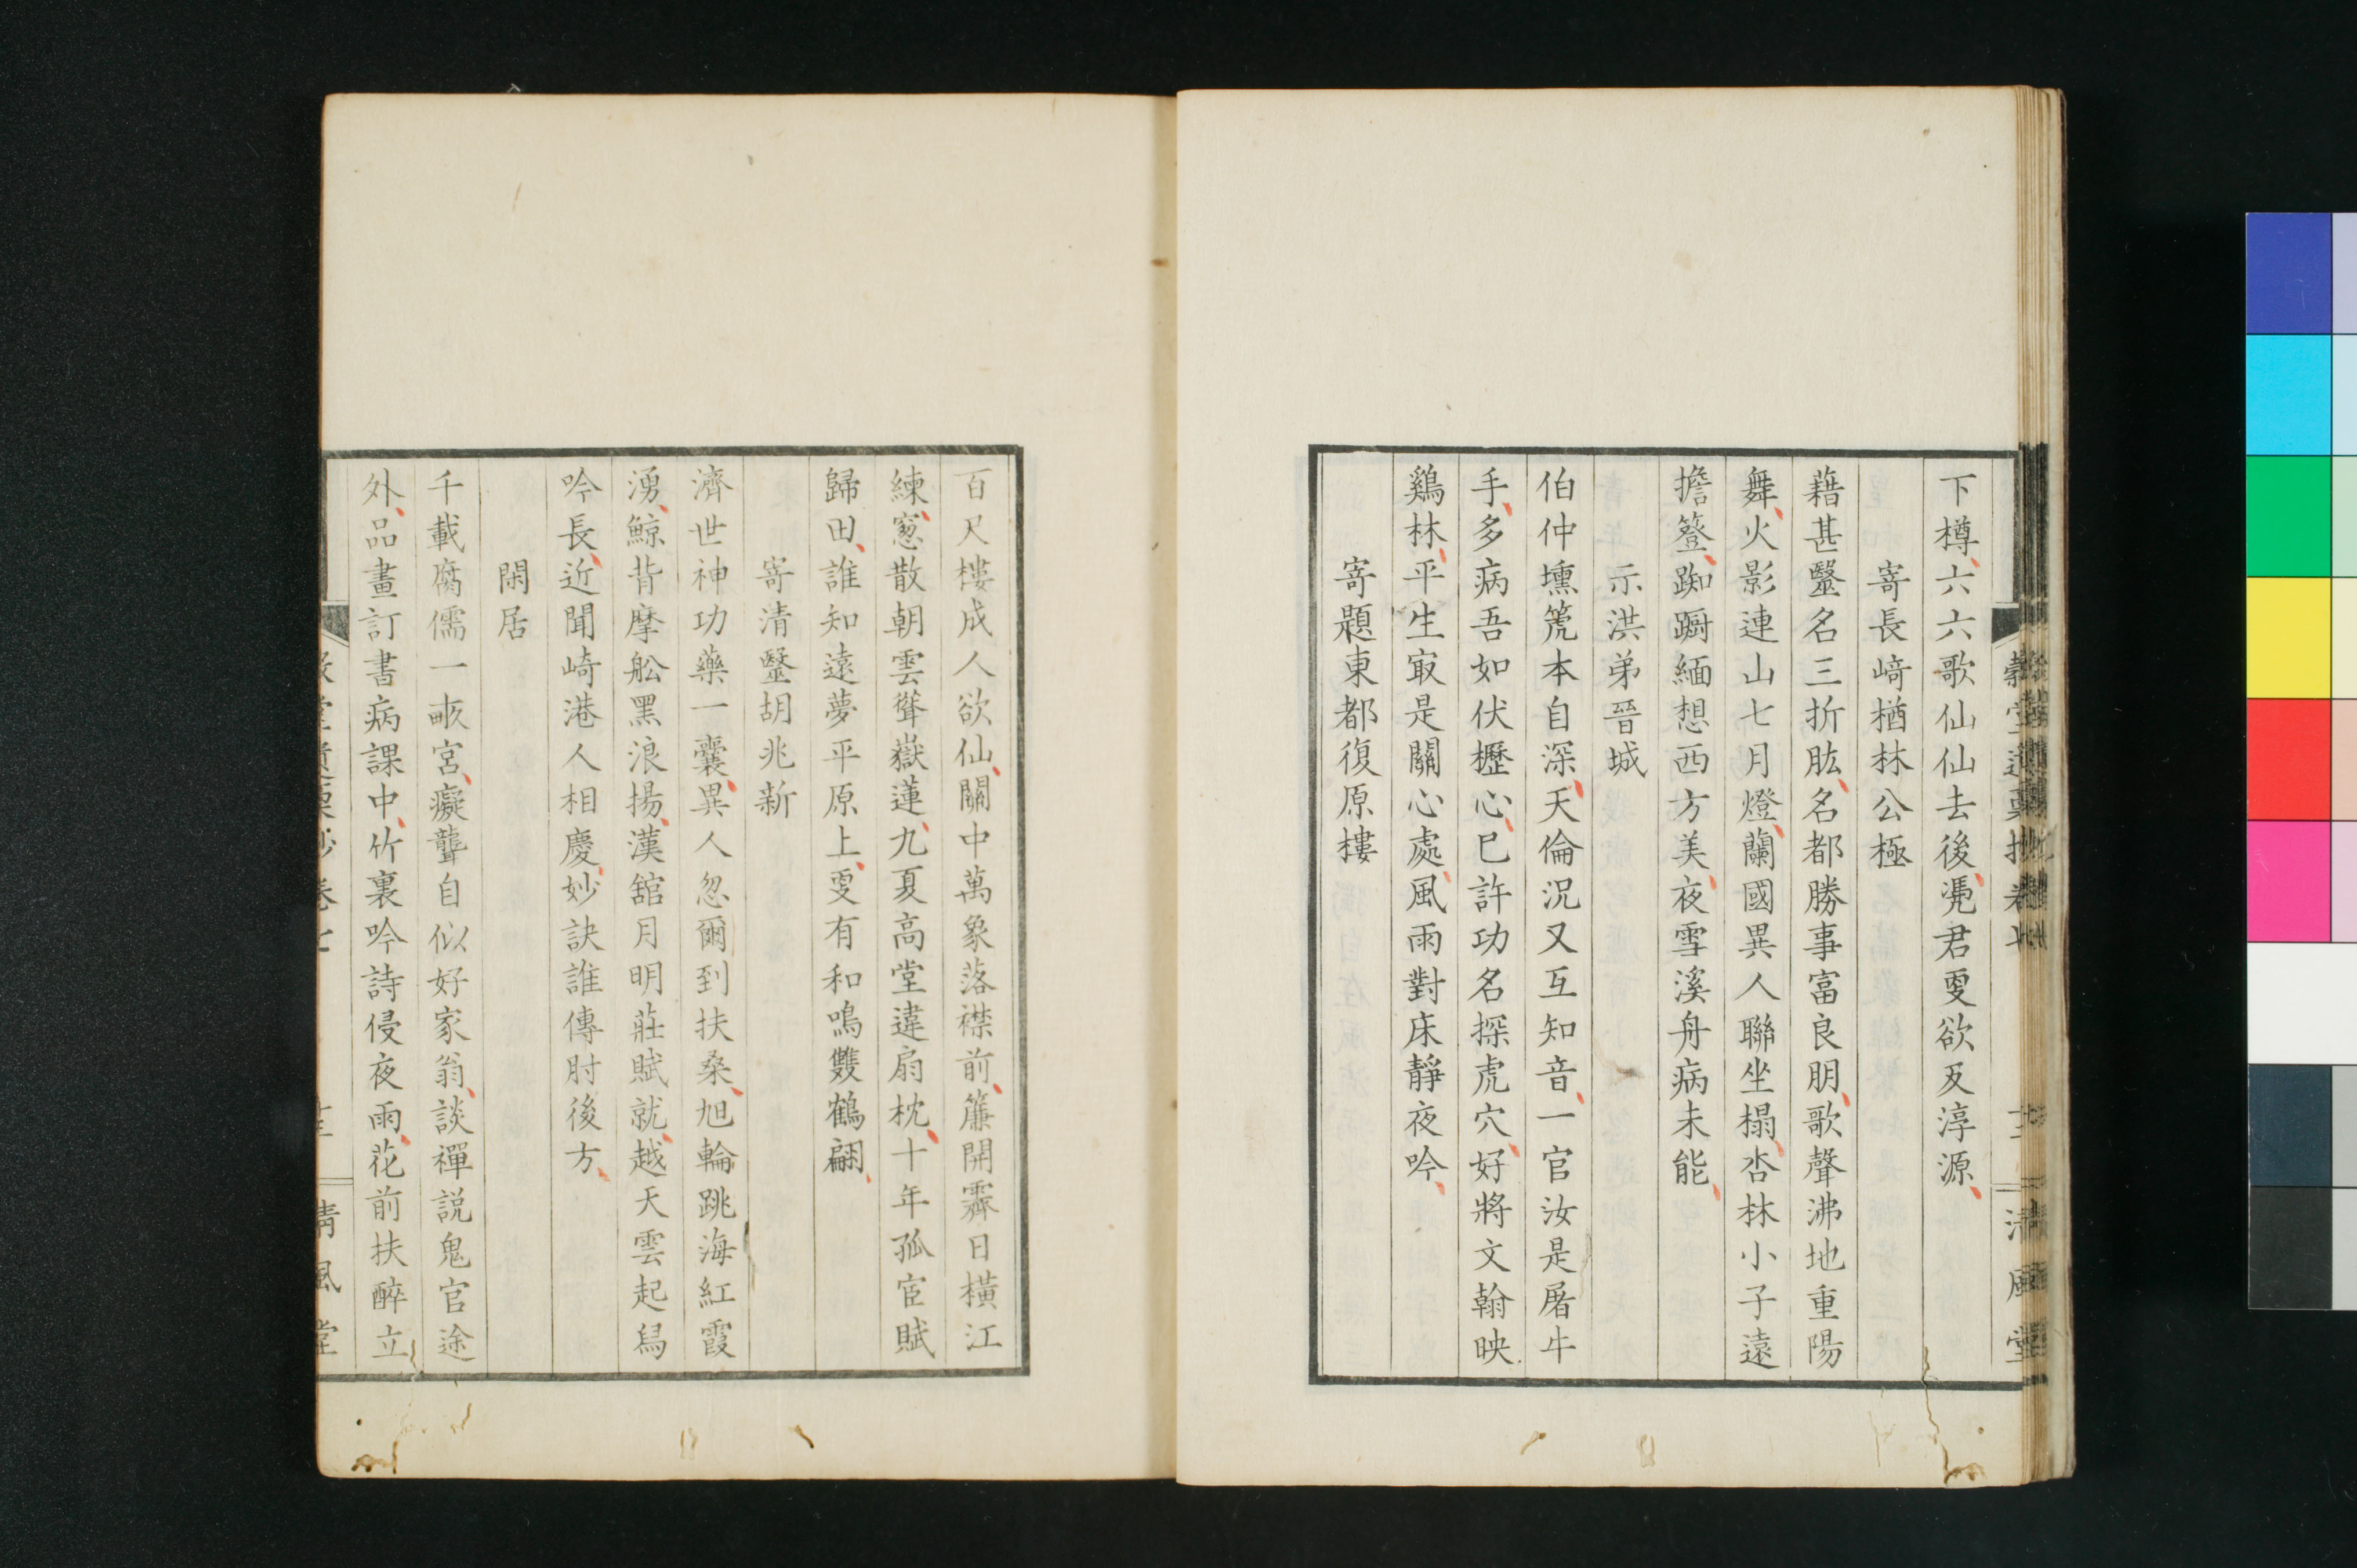 下樽六六歌仙仙去後凴君更欲反淳源
寄長﨑楢林公極
藉甚毉名三折肱名都勝事富良朋歌聲沸地重陽
舞火影連山七月燈蘭國異人聯坐榻杏林小子遠
擔簦踟蹰緬想西方美夜雪溪舟病未能
示洪弟晉城
伯仲壎箎本自深天倫況又互知音一官汝是屠牛
手多病吾如伏櫪心已許功名探虎穴好將文翰映
鷄林平生㝡是關心處風雨對床靜夜吟
寄題東都復原樓
百尺樓成人欲仙關中萬象落襟前簾開霽日橫江
練窓散朝雲聳嶽蓮九夏高堂違扇枕十年孤宦賦
歸田誰知遠夢平原上更有和鳴雙鶴翩
寄清毉胡兆新
濟世神功藥一囊異人忽爾到扶桑旭輪跳海紅霞
湧鯨背摩舩黑浪揚漢舘月明莊賦就越天雲起舃
吟長近聞崎港人相慶妙訣誰傳肘後方
閑居
千載腐儒一畝宮癡聾自似好家翁談禪說鬼官途
外品畫訂書病課中竹裏吟詩侵夜雨花前扶醉立
清風堂